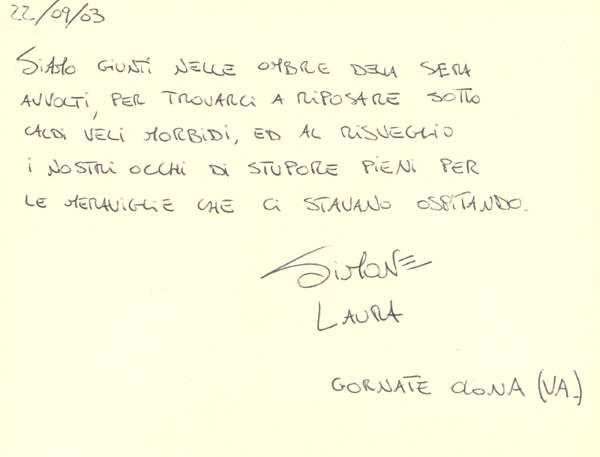 22/09/03
SIAMO GIUNTI NELLE OMBRE DELLA SERA
AVVOLTI, PER TROVARCI A RIPOSARE SOTTO
CALDI VELI MORBIDI, ED AL RISVEGLIO
I NOSTRI OCCHI DI STUPORE PIENI PER
LE MERAVIGLIE CHE CI STAVANO OSPITANDO.
SIMONE
LAURA
GORNATE OLONA (VA.)